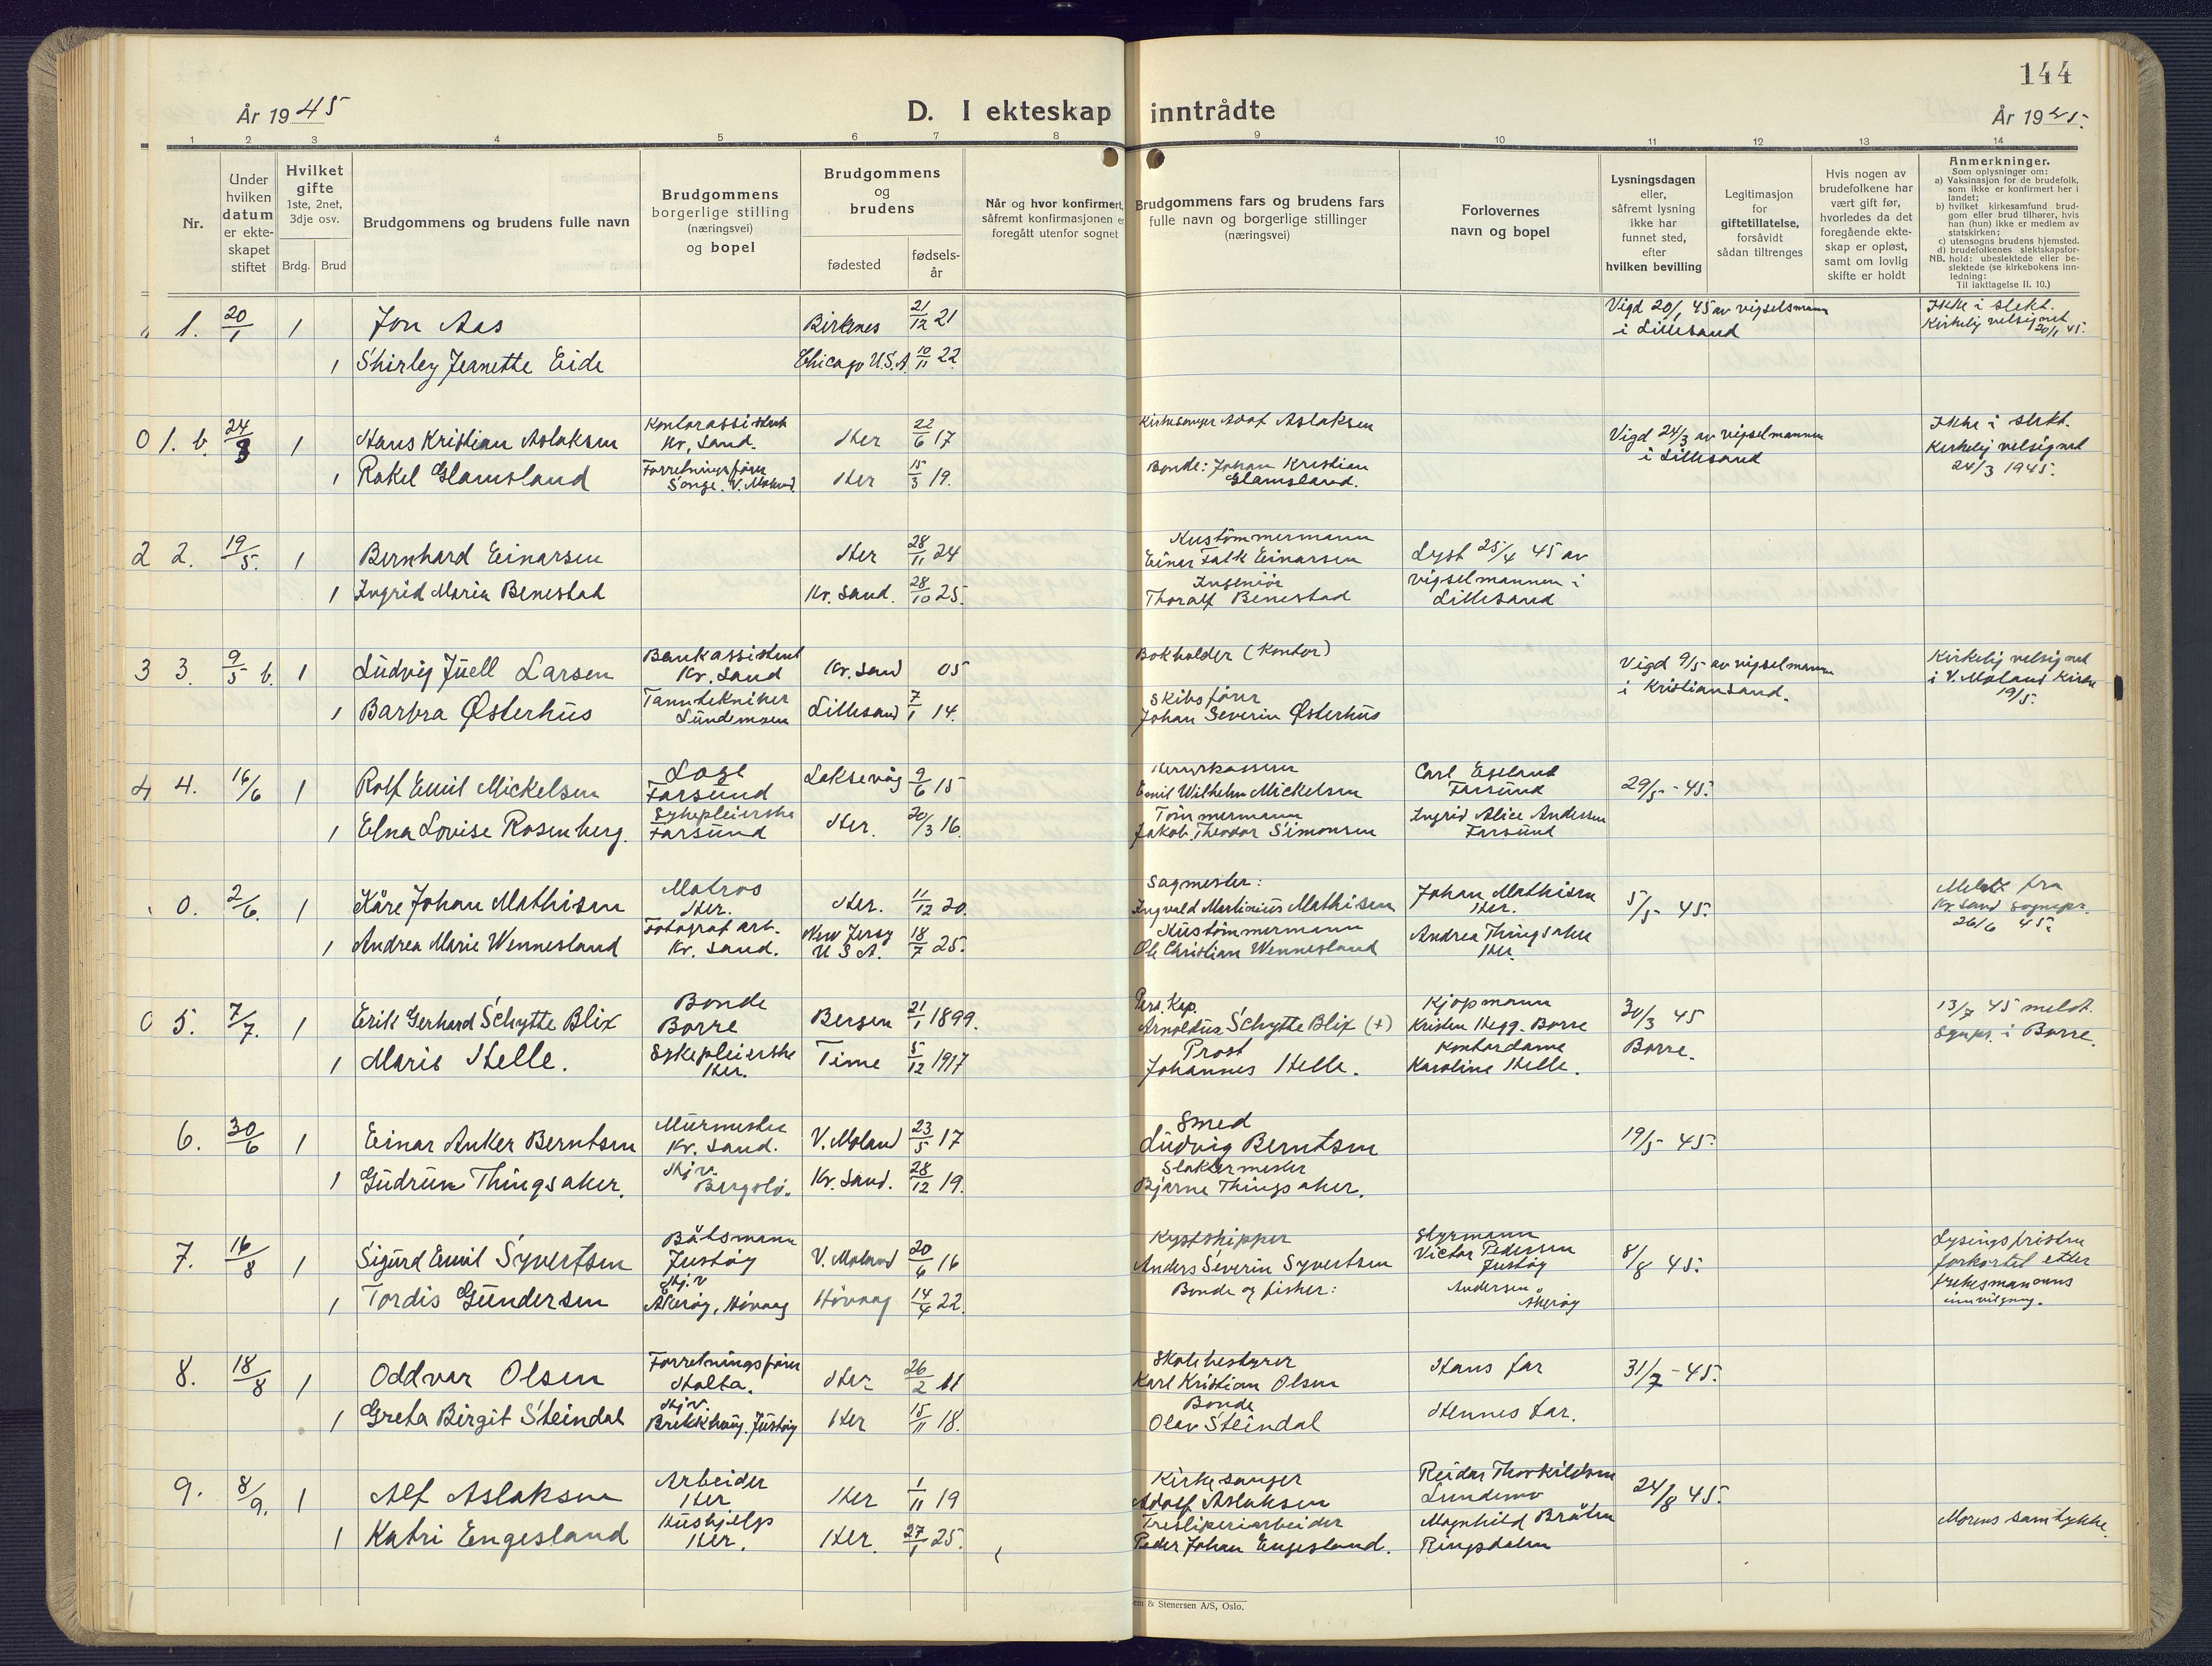 144
År 1945
D. I ekteskap inntrådte
År 1945.
1 2 3 4 5 6 7 8 9 10 11 12 13 14
Nr.
Under
hvilken
datum
er ekte-
skapet
stiftet
Hvilket
gifte
1ste, 2net,
3dje osv.
Brdg. Brud
Brudgommens og brudens fulle navn
Brudgommens
borgerlige stilling
(næringsvei)
og bopel
Brudgommens
og
brudens
fødested
fødsels-
år
Når og hvor konfirmert,
såfremt konfirmasjonen er
foregått utenfor sognet
Brudgommens fars og brudens fars
fulle navn og borgerlige stillinger
(næringsvei)
Forlovernes
navn og bopel
Lysningsdagen
eller,
såfremt lysning
ikke har
funnet sted,
efter
hvilken bevilling
Legitimasjon
for
giftetillatelse,
forsåvidt
sådan tiltrenges
Hvis nogen av
brudefolkene har
vært gift før,
hvorledes da det
foregående ekte-
skap er opløst,
samt om lovlig
skifte er holdt
Anmerkninger.
Som oplysninger om:
a) Vaksinasjon for de brudefolk,
som ikke er konfirmert her i
landet;
b) hvilket kirkesamfund brud-
gom eller brud tilhører, hvis
han (hun) ikke er medlem av
statskirken;
c) utensogns brudens hjemsted.
d) brudefolkenes slektskapsfor-
NB. hold: ubeslektede eller be-
slektede (se kirkebokens inn-
ledning:
Til iakttagelse II. 10.)
1. 20/1 1 Jon Aas Birknes 21/12 21 Vigd 20/1 45 av vigselsmann i Lillesand Ikke i slekt. Kirkelig velsignet 20/1 45.
1 Shirley Jeanette Eide Chicago U.S.A. 10/11 22.
0 1. b. 24/3 1 Hans Kristian Aslaksen Kontorassistent Kr. Sand. Her 22/6 17 Kirkesanger Adolf Aslaksen Vigd 24/3 av vigselmannen i Lillesand Ikke i slekt. Kirkelig velsignet 24/3 1945.
1 Rakel Glamsland Forretningsfører Songe. V. Moland. Her 15/3 19. Bonde: Johan Kristian Glamsland.
2 2. 19/5. 1 Bernhard Einarsen Her 28/11 24 Kustømmermann Einar Falk Einarsen Lyst 25/4 45 av
1 Ingrid Maria Benestad Kr. Sand. 28/10 25. Ingeniør Thoralf Benestad vigselmannen i Lillesand
3 3. 9/5 b. 1 Ludvig Juell Larsen Bankassistent Kr. Sand Kr. Sand 05 Bokholder (Kontor) Vigd 9/5 av vigselmann i Kristiansand. Kirkelig velsignet i V. Moland Kirke 19/5.
1 Barbra Østerhus Tanntekniker Lundemoen Lillesand 7/1 14. Skibsfører Johan Severin Østerhus
4 4. 16/6 1 Rolf Emil Mickelsen Farsund Laksevåg 9/6 15 Emil Wilhelm Mickelsen Carl Egeland Farsund 29/5 - 45.
1 Elna Lovise Rosenberg. Sykepleierske Farsund Her. 20/3 16. Tømmermann Jakob Theodor Simonsen Ingrid Alice Andersen Farsund
0. 2/6. 1 Kåre Johan Mathisen Matros Her. Her. 11/12 20. Sagmester: Ingvald Martinius Mathisen Johan Mathisen Her. 5/5 45. Meldt fra Kr. Sand sognepr. 26/6 45.
1 Andrea Marie Wennesland Fotograf arb. Kr. Sand. New Jersy U S A. 18/7 25. Kustømmermann Ole Christian Wennesland Andrea Thingsaker Her.
0 5. 7/7. 1 Erik Gerhard Schytte Blix Bonde Borre Bergen 21/1 1899. Pers. Kap. Arnoldus Schytte Blix (+) Kjøpmann Kristen Hegg. Borre 30/3 45 13/7 45 meldt. Sognpr. i Borre.
1 Marie Helle. Sykepleierske Her. Time 5/12 1917 Prost Johannes Helle. Kontordame Karoline Helle. Borre.
6. 30/6 1 Einar Anker Berntsen Murmester Kr. Sand. V. Moland 23/5 17 Smed Ludvig Berntsen 19/5 45.
1 Gudrun Thingsaker. Hjv. Kr. Sand. 28/12 19. Slaktermester Bjarne Thingsaker.
7. 16/8 1 Sigurd Emil Syvertsen Båtsmann Justøy V. Moland 20/6 16 Kystskipper Anders Severin Syvertsen Styrmann Victor Pedersen Justøy 8/8 45. Lysingsfristen forkortet etter
1 Tordis Gundersen Hjv Åkerøy, Høvaag Høvaag 14/4 22. Bonde og fisker: Andersen. Åkerøy
8. 18/8 1 Oddvar Olsen Forretningsfører Her 26/2 11 Skolebestyrer Karl Kristian Olsen Hans far 31/7 - 45.
1 Greta Birgit Steindal Hjv. Brekkhaug. Justøy Her 15/11 18. Bonde Olav Steindal Hennes far.
9. 8/9. 1 Alf Aslaksen Arbeider Her Her 1/11 19 Kirkesanger Adolf Aslaksen Reidar Thorkildsen Lundemo 24/8 45.
1 Katri Engesland Hushjelp Her. Her. 27/1 25. Tresliperiarbeider Peder Johan Engesland. Magnhild Bråten Ringsdalen Morens samtykke.
& Stenersen A/S, Oslo.